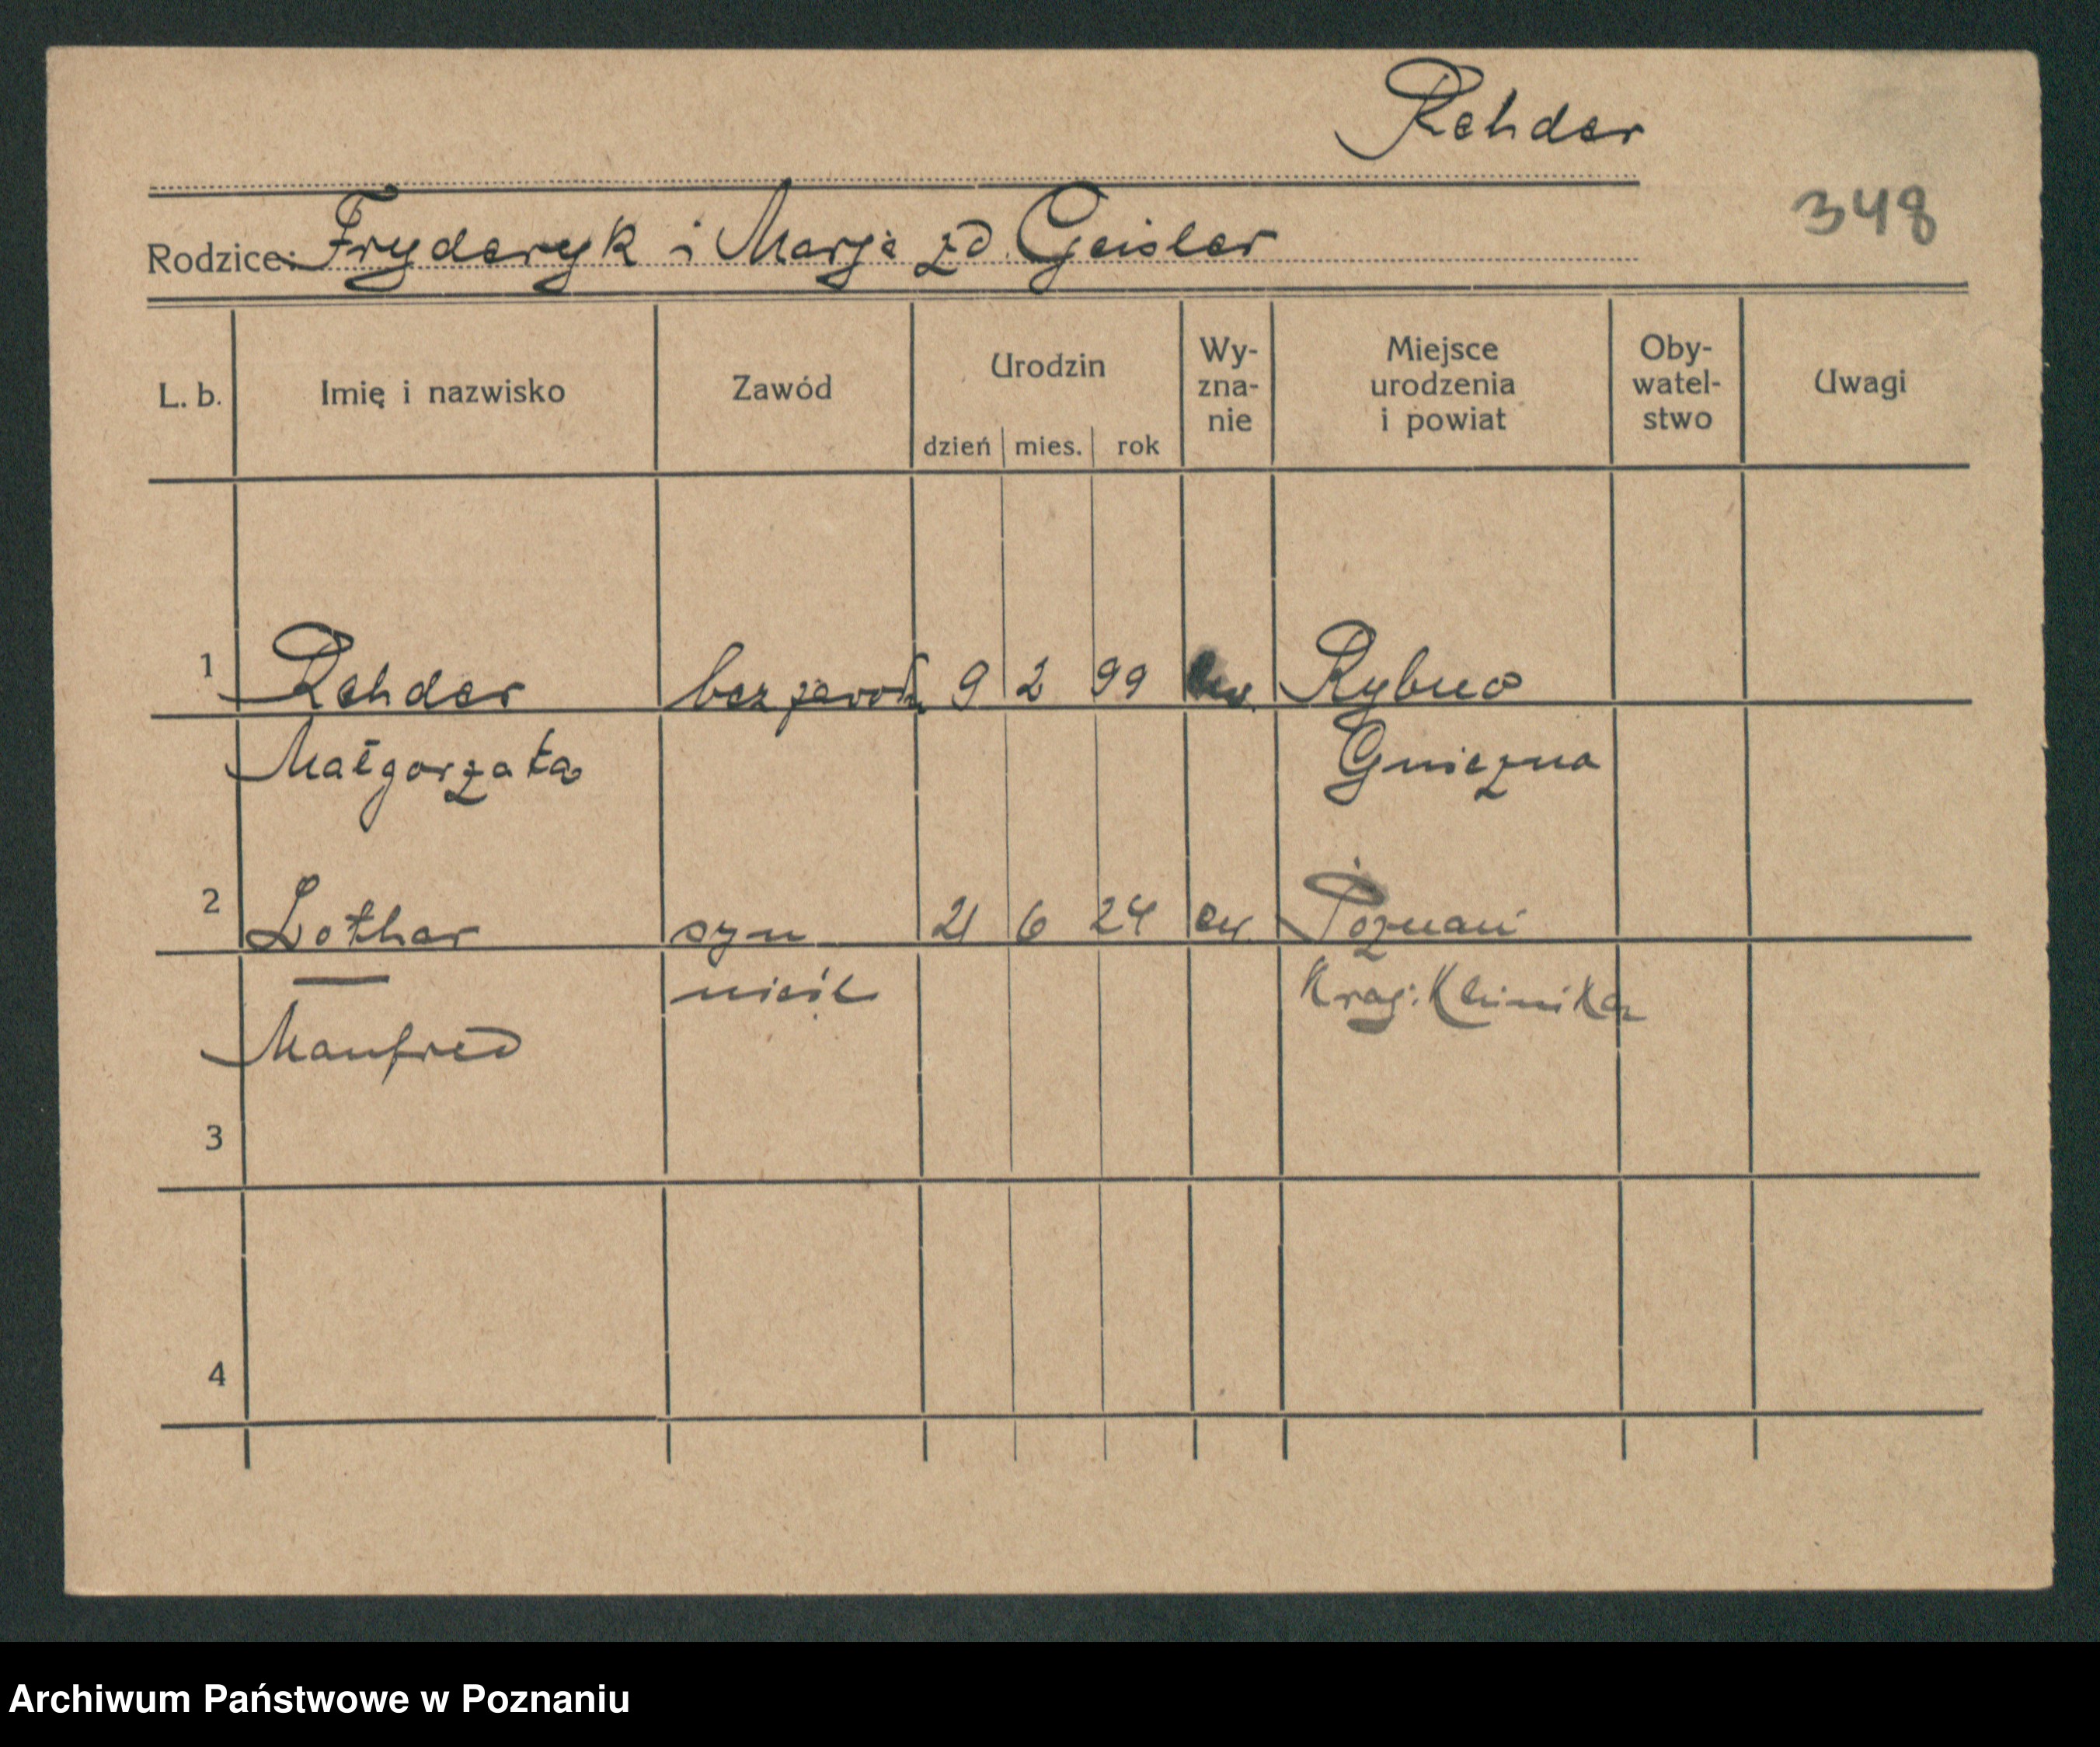 Rehder
348
Rodzice: Fryderyk i Marja zd Geisler
L. b. Imię i nazwisko Zawód Urodzin dzień mies. rok Wy-zna-nie Miejsce urodzenia i powiat Oby-watel-stwo Uwagi
1 Rehder bez zawodu 9 2 99 ew. Rybno
Małgorzata Gniezno
2 Lothar syn 21 6 24 ew. Poznań
nieśl Kraj. Klinika
Manfred
3
4
Archiwum Państwowe w Poznaniu